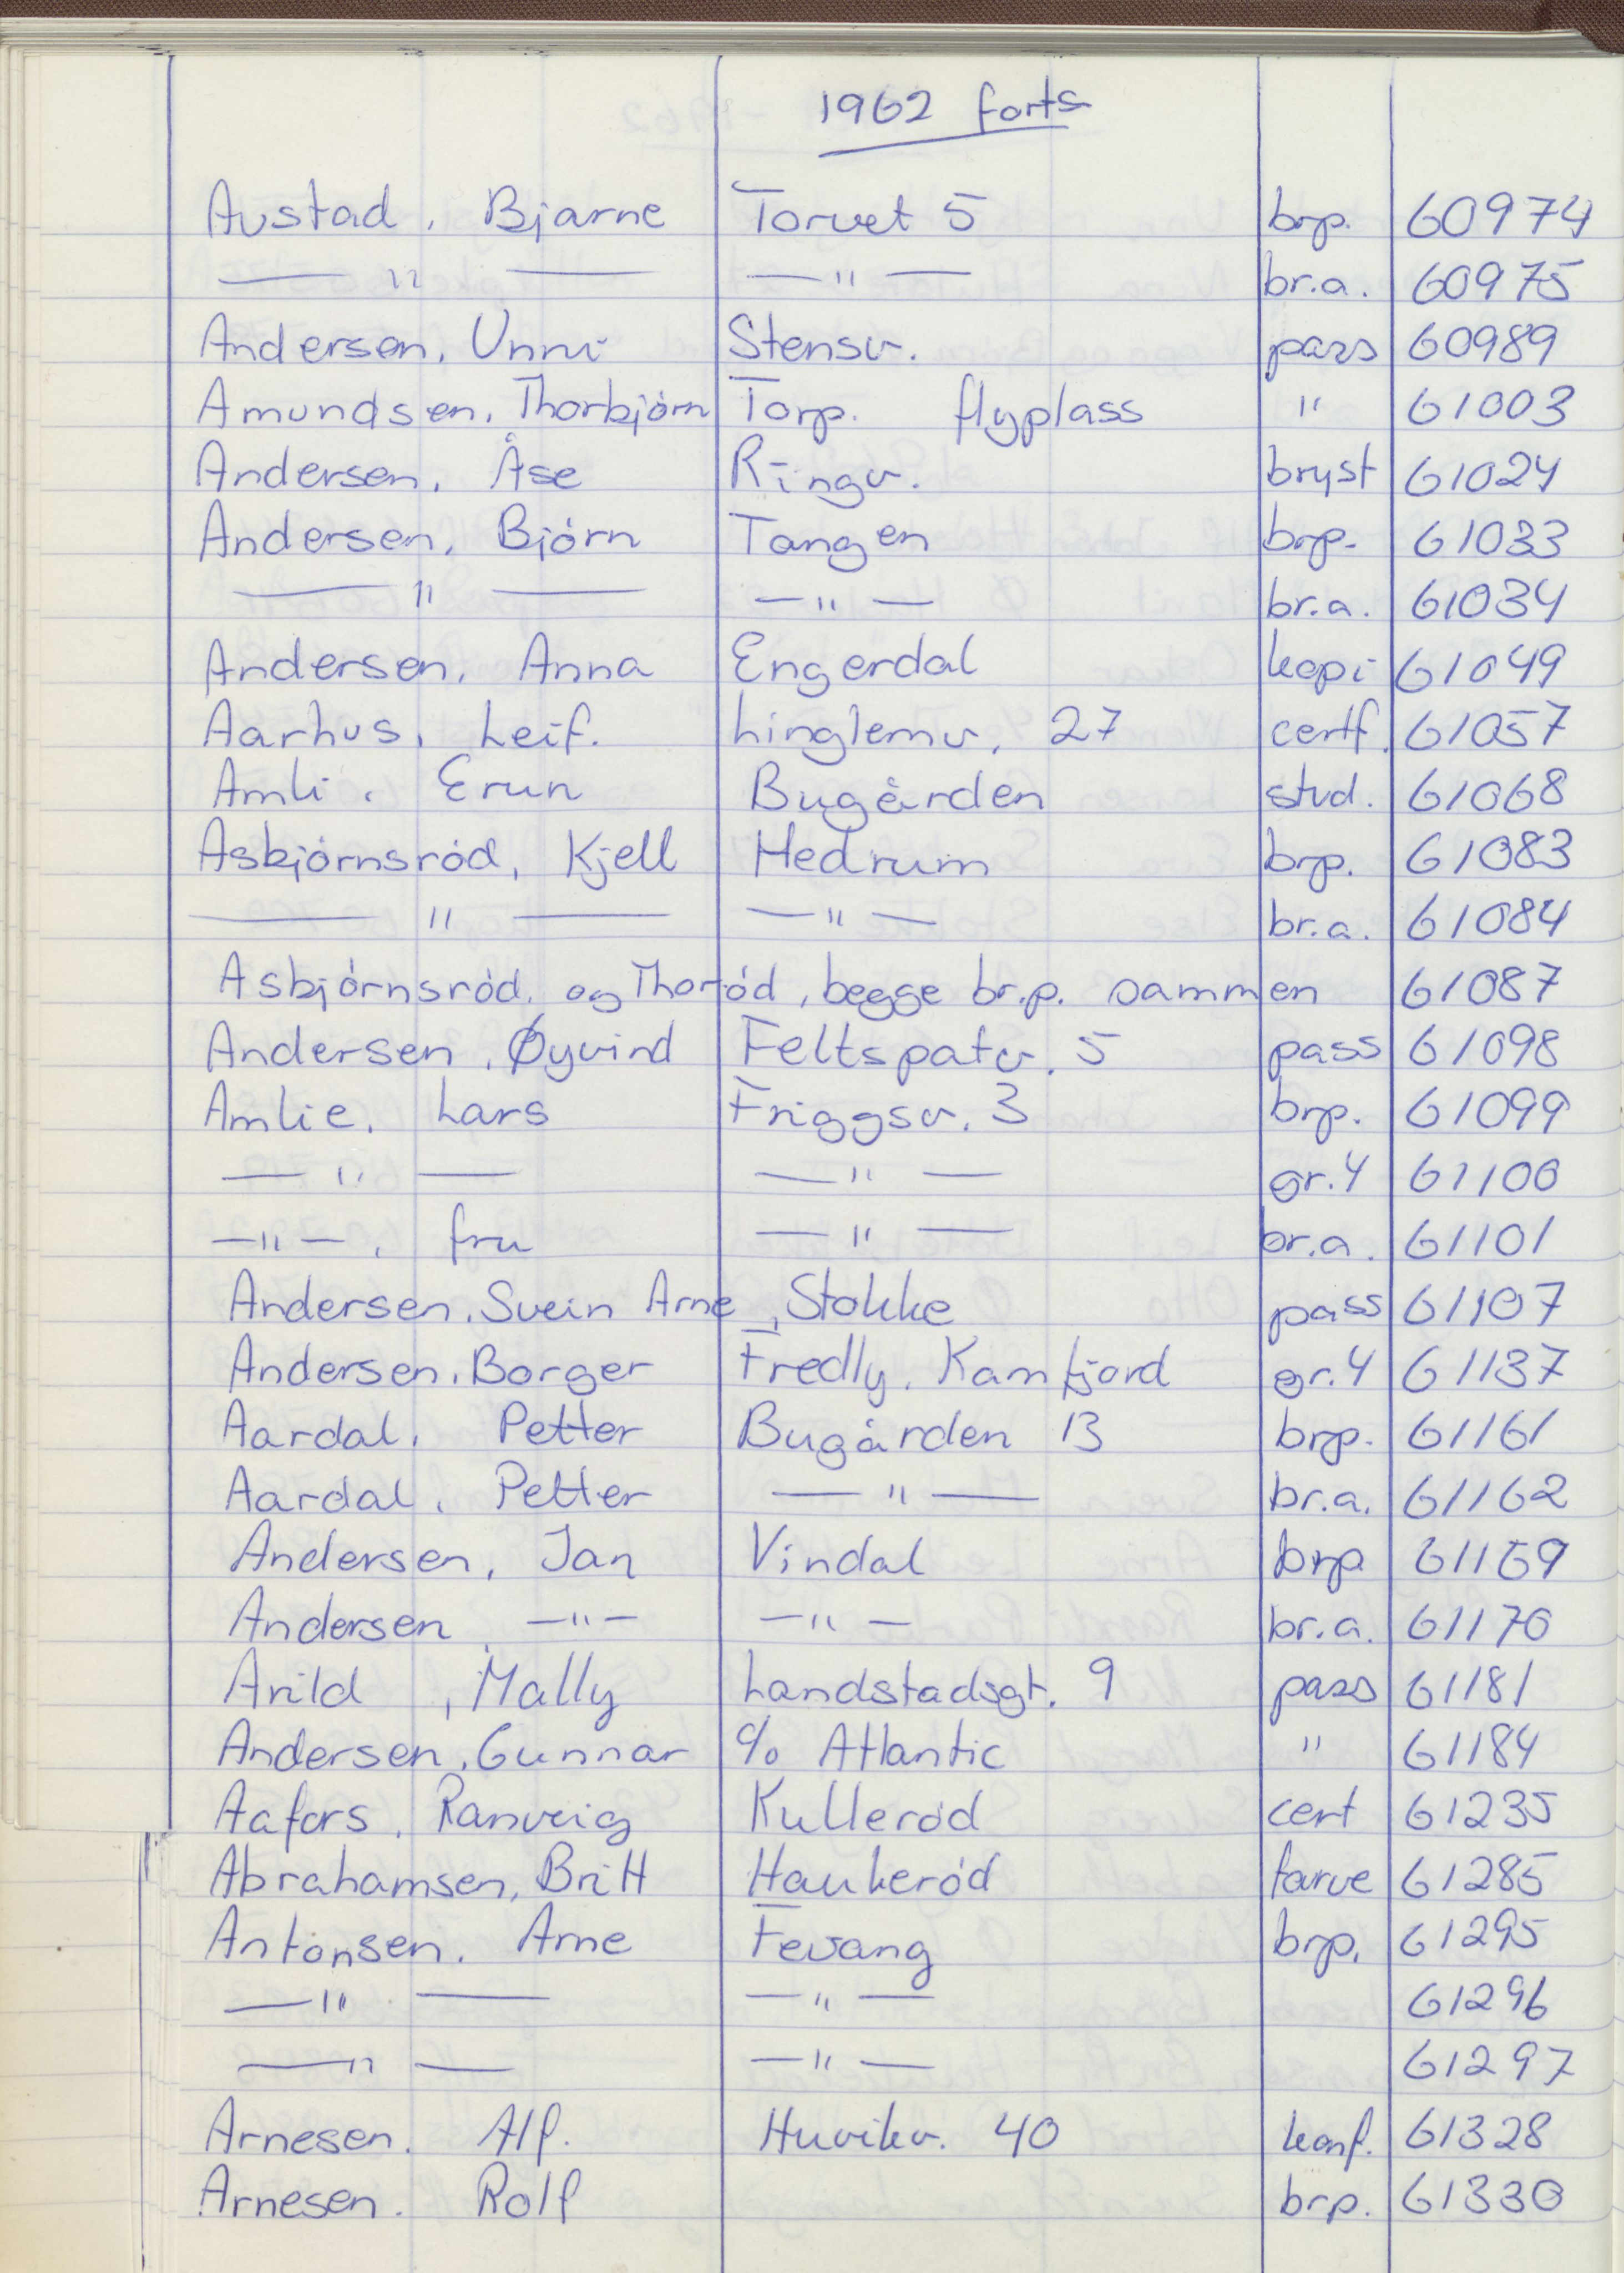 1962 forts
Austad, Bjarne Torvet 5 brp. 60974
— " — — " — br.a. 60975
Andersen, Unni Stensv. pass 60989
Amundsen, Thorbjörn Torp. flyplass " 61003
Andersen, Åse Ringv. bryst 61024
Andersen, Björn Tangen brp. 61033
— " — — " — br.a. 61034
Andersen, Anna Engerdal kopi 61049
Aarhus, Leif. Linglemv. 27 certf. 61057
Amli, Erun Bugården stud. 61068
Asbjörnsröd, Kjell Hedrum brp. 61083
— " — — " — br.a. 61084
Asbjörnsröd, og Thoröd, begge br.p. sammen 61087
Andersen, Øyvind Feltspatv. 5 pass 61098
Amlie, Lars Friggsv. 3 brp. 61099
— " — — " — gr.4 61100
— " —, fru — " — br.a. 61101
Andersen, Svein Arne, Stokke pass 61107
Andersen, Borger Fredly, Kamfjord gr.4 61137
Aardal, Petter Bugården 13 brp. 61161
Aardal, Petter — " — br.a. 61162
Andersen, Jan Vindal brp 61169
Andersen, — " — — " — br.a. 61170
Arild, Mally Landstadsgt. 9 pass 61181
Andersen, Gunnar c/o Atlantic " 61184
Aafors, Ranveig Kulleröd cert 61235
Abrahamsen, Britt Haukeröd farve 61285
Antonsen, Arne Fevang brp. 61295
— " — — " — 61296
— " — — " — 61297
Arnesen. Alf. Huvikv. 40 konf. 61328
Arnesen. Rolf brp. 61330